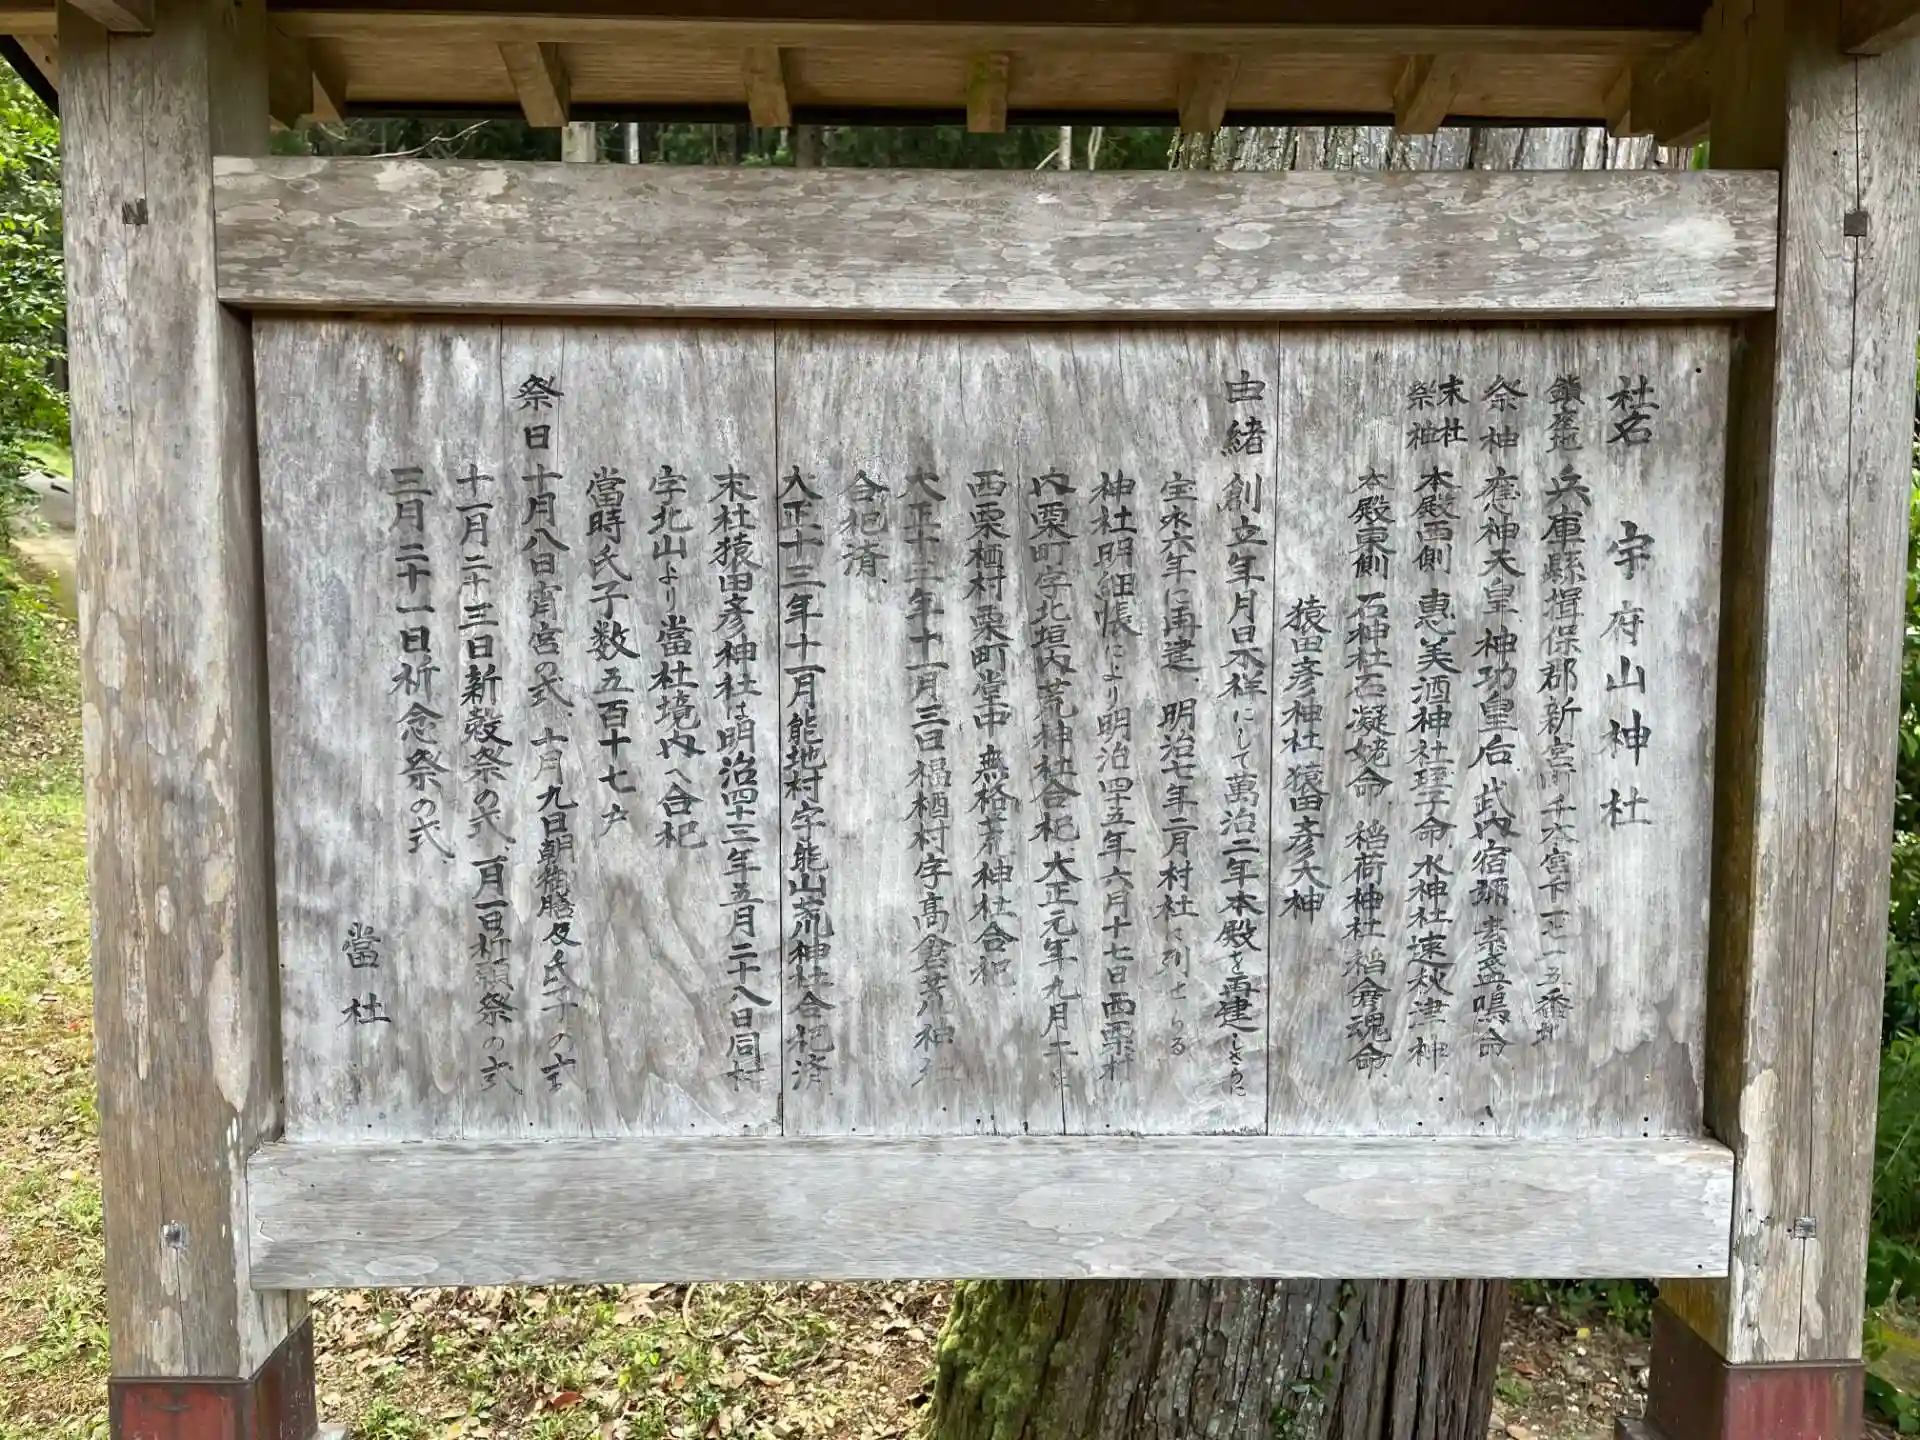 社名 宇府山神社
鎮座地 兵庫縣揖保郡新宮町千本宮下一五番地
祭神 應神天皇、神功皇后、武内宿禰、素盞鳴命
末社祭神 本殿西側 恵美酒神社 蛭子命、水神社 速秋津神、
本殿東側 石神社 石凝姥命、稲荷神社 稲倉魂命、
猿田彦神社 猿田彦大神
由緒 創立年月日不祥にして萬治二年本殿を再建しさらに
宝永六年に再建、明治七年二月村社に列せらる
神社明細帳により明治四十五年六月十七日西栗栖村
内栗町字北垣内荒神社合祀、大正元年九月二
西栗栖村栗町堂中無格荒神社合祀、
大正十三年十一月三日栖村字高倉荒神社
合祀済、
大正十三年十一月能地村字能山荒神社合祀済
末社猿田彦神社は明治四十三年五月二十八日同村
字北山より當社境内へ合祀
當時氏子数五百十七戸
祭日 十月八日宵宮の式、十月九日朝御膳及氏子の式
十一月二十三日新穀祭の式、一月一日祈願祭の式
三月二十一日祈念祭の式、
當社